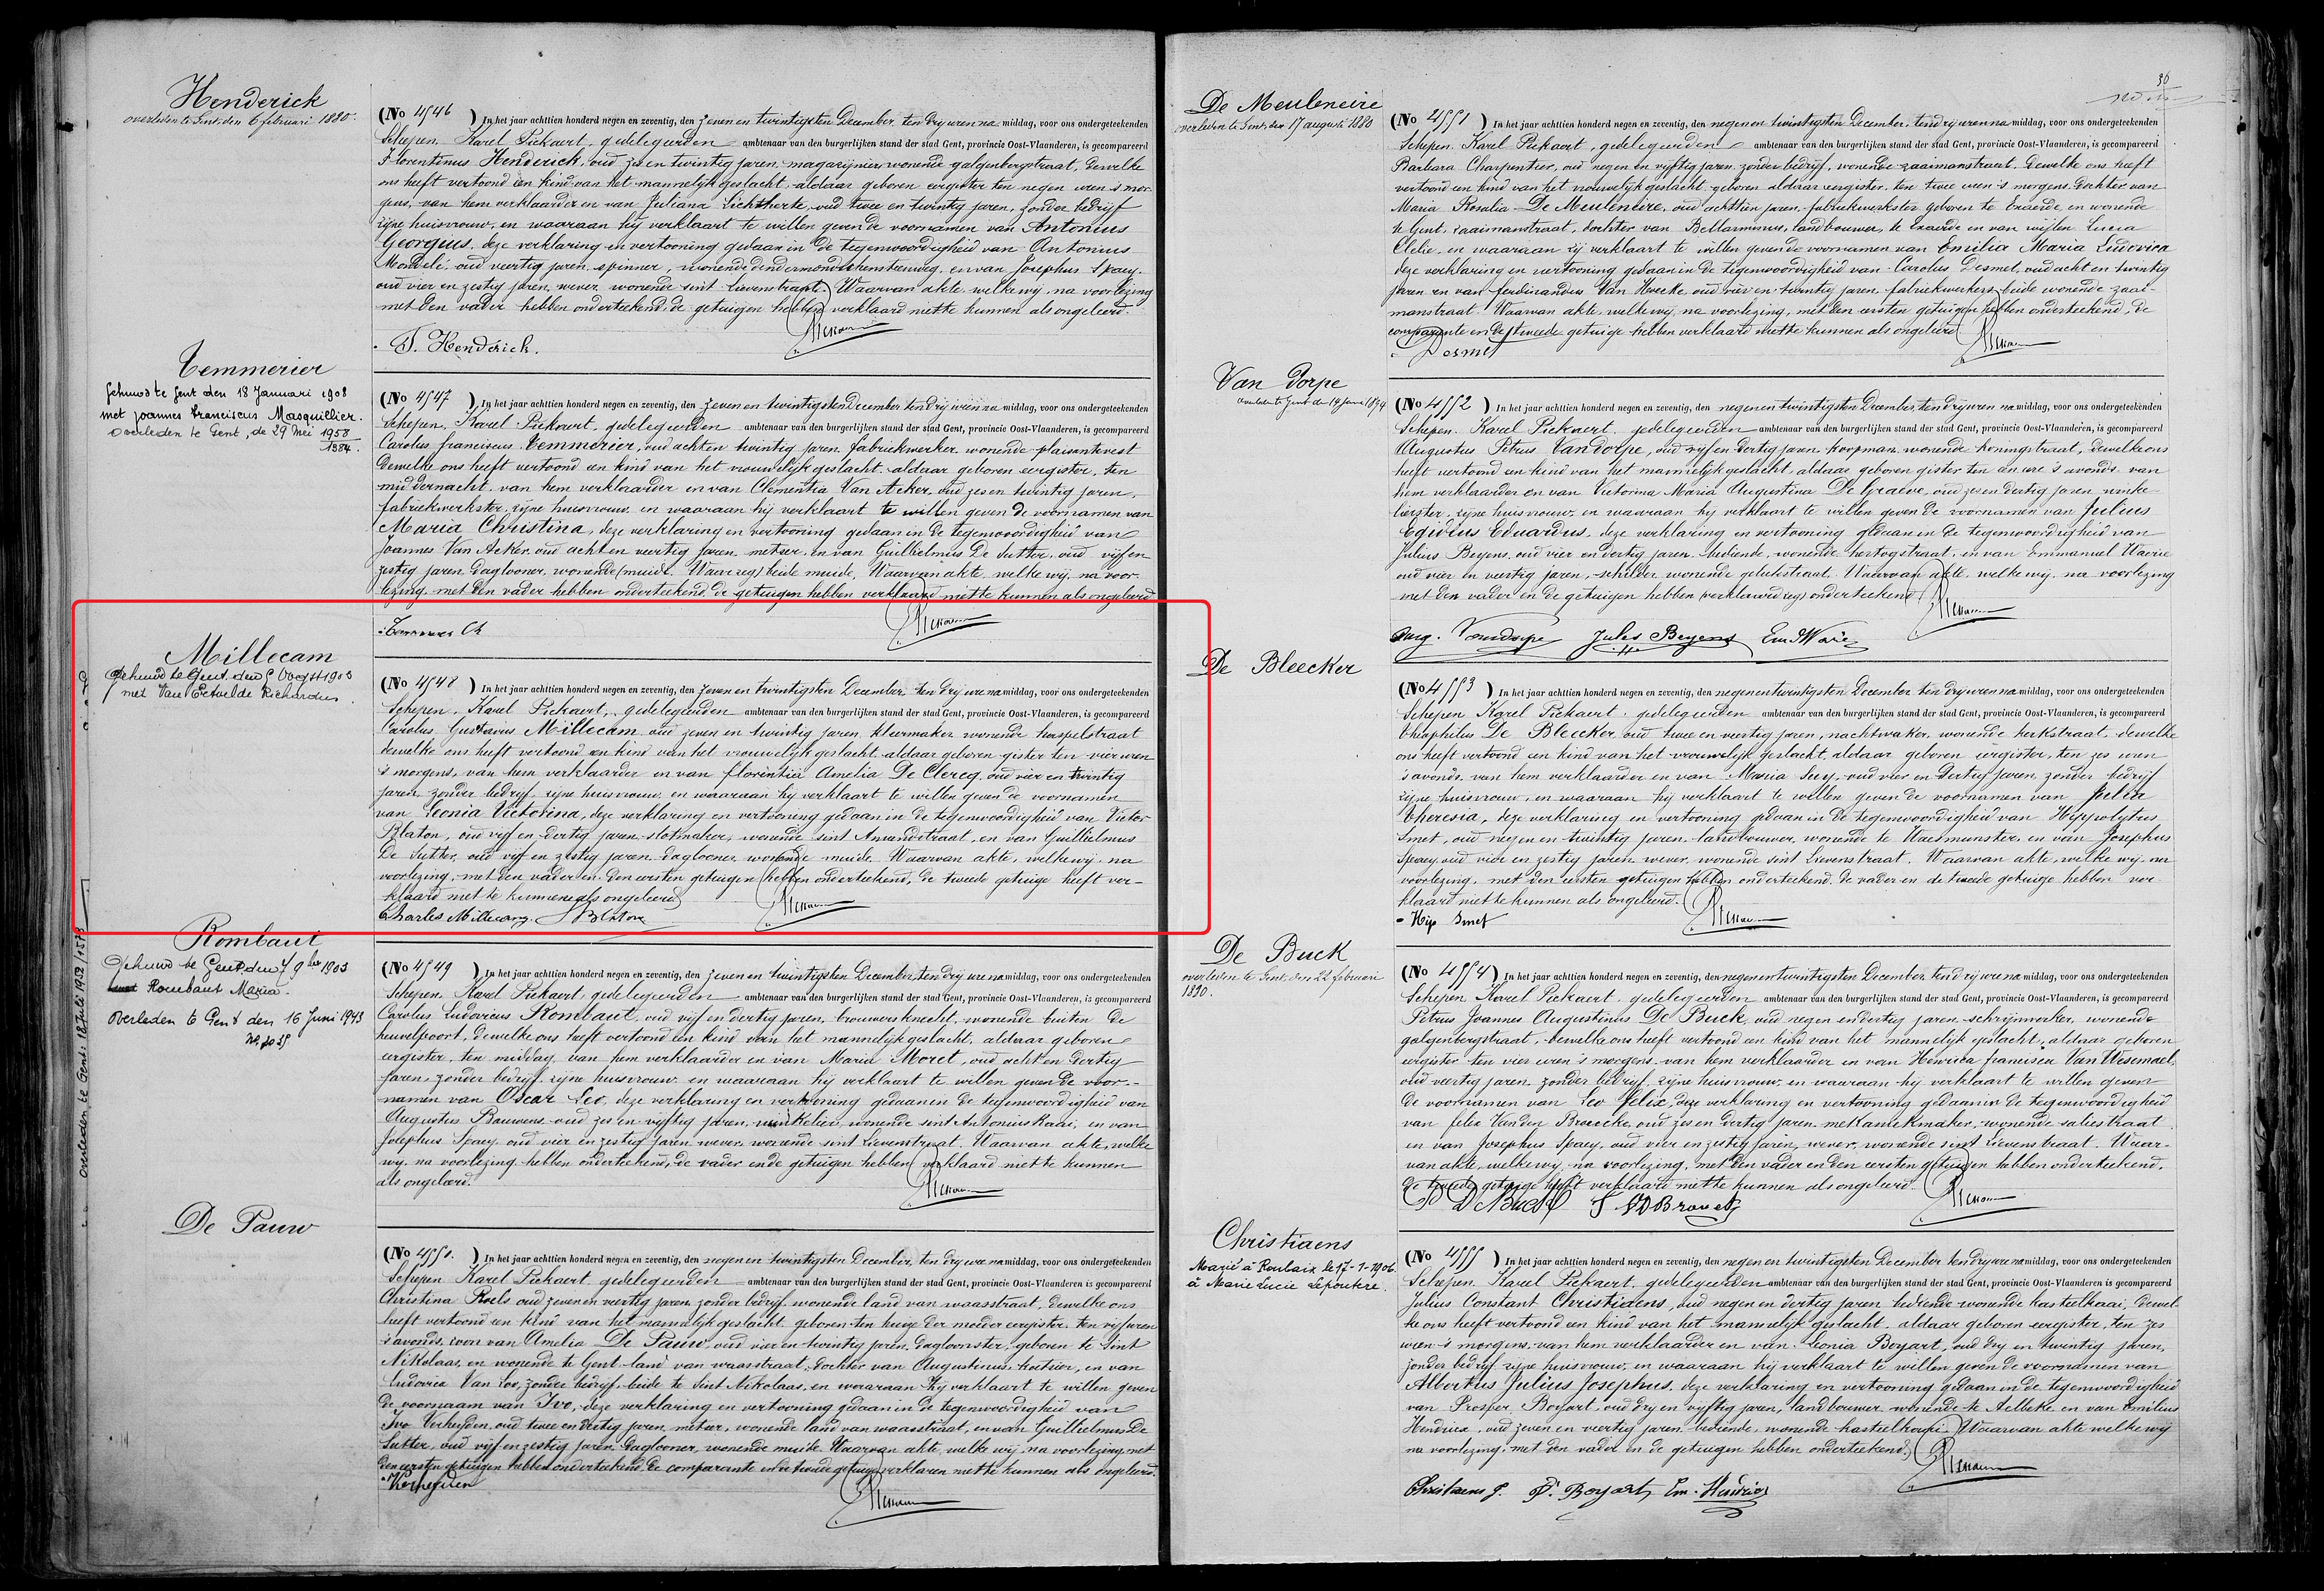 Henderick
overleden te Gent, den 6 februari 1880.
(No 4546) In het jaar achttien honderd negen en zeventig, den zeven en twintigsten December, ten dry uren na middag, voor ons ondergeteekenden
Schepen, Karel Pickaert, gedelegeerden ambtenaar van den burgerlijken stand der stad Gent, provincie Oost-Vlaanderen, is gecompareerd
Florentinus Henderick, oud zes en twintig jaren, magazijnier wonende galgenbergstraat, dewelke
ons heeft vertoond een kind van het mannelyk geslacht, aldaar geboren eergister ten negen uren 's mor-
gens, van hem verklaarder en van Juliana Lichtherte, oud twee en twintig jaren, zonder bedryf
zyne huisvrouw, en waaraan hy verklaart te willen geven de voornamen van Antonius
Georgius, deze verklaring en vertooning gedaan in de tegenwoordigheid van Antonius
oud veertig jaren, spinner, wonende dendermondschensteenweg, en van Josephus Spaey,
oud vier en zestig jaren, wever, wonende sint Lievenstraat. Waarvan akte, welke wy, na voorlezing
met den vader hebben onderteekend, de getuigen hebben verklaard niet te kunnen als ongeleerd.
F. Henderick.
Temmerier
Gehuwd te Gent den 18 Januari 1908
met Joannes Franciscus Masquillier.
Overleden te Gent, de 29 Mei 1958
1984.
(No 4547) In het jaar achttien honderd negen en zeventig, den zeven en twintigsten December ten dry uren na middag, voor ons ondergeteekenden
Schepen, Karel Pickaert, gedelegeerden ambtenaar van den burgerlijken stand der stad Gent, provincie Oost-Vlaanderen, is gecompareerd
Carolus Franciscus Temmerier, oud acht en twintig jaren, fabriekwerker, wonende plaisantevest
dewelke ons heeft vertoond een kind van het vrouwelyk geslacht, aldaar geboren eergister, ten
middernacht, van hem verklaarder en van Clementia Van Acker, oud zes en twintig jaren,
fabriekwerkster, zyne huisvrouw, en waaraan hy verklaart te willen geven de voornamen van
Maria Christina, deze verklaring en vertooning gedaan in de tegenwoordigheid van
Joannes Van Acker, oud acht en veertig jaren, metser, en van Guillielmus De Sutter, oud vyf en
zestig jaren, daglooner, wonende (muide. Waar zeg) beide muide, Waarvan akte, welke wy, na voor-
lezing, met den vader hebben onderteekend, de getuigen hebben verklaard niet te kunnen als ongeleerd
Millecam
Gehuwd te Gent, den 5 Oogst 1905
met Van Eetvelde Richardus
(No 4548) In het jaar achttien honderd negen en zeventig, den zeven en twintigsten December, ten dry uren na middag, voor ons ondergeteekenden
Schepen, Karel Pickaert, gedelegeerden ambtenaar van den burgerlijken stand der stad Gent, provincie Oost-Vlaanderen, is gecompareerd
Carolus Gustavus Millecam, oud zeven en twintig jaren, kleermaker, wonende haspelstraat
dewelke ons heeft vertoond een kind van het vrouwelyk geslacht, aldaar geboren gister ten vier uren
's morgens, van hem verklaarder en van Florintia Amelia De Clercq, oud vier en twintig
jaren, zonder bedryf, zyne huisvrouw, en waaraan hy verklaart te willen geven de voornamen
van Leonia Victorina, deze verklaring en vertooning gedaan in de tegenwoordigheid van Victor
Blaton, oud vyf en dertig jaren, slotmaker, wonende sint Amandstraat, en van Guillielmus
De Sutter, oud vyf en zestig jaren, daglooner, wonende muide. Waarvan akte, welke wy, na
voorlezing, met den vader en den eersten getuigen hebben onderteekend, de tweede getuige heeft ver-
klaard niet te kunnen als ongeleerd
Charles Millecam. Blaton
Rombaut
Gehuwd te Gent, den 7 9ber 1903
Rombaut Maria.
Overleden te Gent den 16 Juni 1943
Overleden te Gent: 18 Juli 1952 / 1573
(No 4549) In het jaar achttien honderd negen en zeventig, den zeven en twintigsten December, ten dry uren na middag, voor ons ondergeteekenden
Schepen, Karel Pickaert, gedelegeerden ambtenaar van den burgerlijken stand der stad Gent, provincie Oost-Vlaanderen, is gecompareerd
Carolus Ludovicus Rombaut, oud vyf en dertig jaren, brouwersknecht, wonende buiten de
heuvelpoort, dewelke ons heeft vertoond een kind van het mannelyk geslacht, aldaar geboren
eergister, ten middag, van hem verklaarder en van Maria Moret, oud acht en dertig
jaren, zonder bedryf, zyne huisvrouw, en waaraan hy verklaart te willen geven de voor-
namen van Oscar Leo, deze verklaring en vertooning gedaan in de tegenwoordigheid van
Augustus Bauwens, oud zes en vyftig jaren, winkelier, wonende sint Antonius Kaai, en van
Josephus Spaey, oud vier en zestig jaren, wever, wonende sint Lievenstraat. Waarvan akte, welke
wy, na voorlezing, hebben onderteekend, de vader en de getuigen hebben verklaard niet te kunnen
als ongeleerd.
De Pauw
(No 4550.) In het jaar achttien honderd negen en zeventig, den negen en twintigsten December, ten dry uren na middag, voor ons ondergeteekenden
Schepen, Karel Pickaert, gedelegeerden ambtenaar van den burgerlijken stand der stad Gent, provincie Oost-Vlaanderen is gecompareerd
Christina Roels, oud zeven en veertig jaren, zonder bedryf, wonende land van waasstraat, dewelke ons
heeft vertoond een kind van het mannelyk geslacht, geboren ten huize der moeder eergister, ten vyf uren
's avonds, zoon van Amelia De Pauw, oud vier en twintig jaren, dagloonster, geboren te Sint
Nikolaas, en wonende te Gent, land van waasstraat, dochter van Augustinus, koetsier, en van
Ludovica Van Loo, zonder bedryf, beide te Sint Nikolaas, en waaraan zy verklaart te willen geven
de voornaam van Ivo, deze verklaring en vertooning gedaan in de tegenwoordigheid van
Ivo Verheyden, oud twee en dertig jaren, metser, wonende land van waasstraat, en van Guillielmus De
Sutter, oud vyf en zestig jaren, daglooner, wonende muide. Waarvan akte, welke wy, na voorlezing, met
den eersten getuigen hebben onderteekend, de comparante en de tweede getuige verklaren niet te kunnen als ongeleerd.
Verheyden
36
De Meuleneire
overleden te Gent, den 17 augusti 1880
(No 4551) In het jaar achttien honderd negen en zeventig, den negen en twintigsten December, ten dry uren na middag, voor ons ondergeteekenden
Schepen, Karel Pickaert, gedelegeerden ambtenaar van den burgerlijken stand der stad Gent, provincie Oost-Vlaanderen, is gecompareerd
Barbara Charpentier, oud negen en vyftig jaren, zonder bedryf, wonende zaaimanstraat, dewelke ons heeft
vertoond een kind van het vrouwelyk geslacht, geboren aldaar eergister, ten twee uren 's morgens, dochter van
Maria Rosalia De Meuleneire, oud achttien jaren, fabriekwerkster, geboren te Exaerde, en wonende
te Gent, zaaimanstraat, dochter van Bellarminus, landbouwer, te Exaerde en van wylen Lucia
en waaraan zy verklaart te willen geven de voornamen van Emilia Maria Ludovica
deze verklaring en vertooning gedaan in de tegenwoordigheid van Carolus Desmet, oud acht en twintig
jaren, en van Ferdinandus Van Hoecke, oud vier en twintig jaren, fabriekwerkers, beide wonende zaai-
manstraat. Waarvan akte, welke wy, na voorlezing, met den eersten getuigen hebben onderteekend, de
comparante en de tweede getuige hebben verklaard niet te kunnen als ongeleerd
Desmet
Van Dorpe
overleden te Gent den 14 1894
(No 4552) In het jaar achttien honderd negen en zeventig, den negen en twintigsten December, ten dry uren na middag, voor ons ondergeteekenden
Schepen, Karel Pickaert, gedelegeerden ambtenaar van den burgerlijken stand der stad Gent, provincie Oost-Vlaanderen, is gecompareerd
Augustus Petrus Van Dorpe, oud vyf en dertig jaren, koopman, wonende koningstraat, dewelke ons
heeft vertoond een kind van het mannelyk geslacht, aldaar geboren gister ten ure 's avonds, van
hem verklaarder en van Victorina Maria Augustina De Graeve, oud zes en dertig jaren, winke-
lierster, zyne huisvrouw, en waaraan hy verklaart te willen geven de voornamen van Julius
Egidius Eduardus, deze verklaring en vertooning gedaan in de tegenwoordigheid van
Julius Beyens, oud vier en dertig jaren, bediende, wonende hertogstraat, en van Emmanuel Warie
oud vier en veertig jaren, schilder, wonende geluksstraat. Waarvan akte, welke wy, na voorlezing
met den vader en de getuigen hebben (verklaard zeg) onderteekend
Aug. Vandorpe Jules Beyens Em Warie
De Bleecker
(No 4553) In het jaar achttien honderd negen en zeventig, den negen en twintigsten December ten dry uren na middag, voor ons ondergeteekenden
Schepen, Karel Pickaert, gedelegeerden ambtenaar van den burgerlijken stand der stad Gent, provincie Oost-Vlaanderen, is gecompareerd
Theophilus De Bleecker, oud twee en veertig jaren, nachtwaker, wonende kerkstraat, dewelke
ons heeft vertoond een kind van het vrouwelyk geslacht, aldaar geboren eergister, ten zes uren
's avonds, van hem verklaarder en van Maria Suy, oud vier en dertig jaren, zonder bedryf
zyne huisvrouw, en waaraan hy verklaart te willen geven de voornamen van Julia
Theresia, deze verklaring en vertooning gedaan in de tegenwoordigheid van Hippolytus
Smet, oud negen en twintig jaren, landbouwer, wonende te Waesmunster, en van Josephus
Spaey, oud vier en zestig jaren, wever, wonende sint Lievenstraat. Waarvan akte, welke wy, na
voorlezing, met den eersten getuigen hebben onderteekend, de vader en de tweede getuige hebben ver-
klaard niet te kunnen als ongeleerd.
Hip Smet
De Buck
overleden te Gent, den 22 februari
1890.
(No 4554) In het jaar achttien honderd negen en zeventig, den negen en twintigsten December, ten dry uren na middag, voor ons ondergeteekenden
Schepen, Karel Pickaert, gedelegeerden ambtenaar van den burgerlijken stand der stad Gent, provincie Oost-Vlaanderen, is gecompareerd
Petrus Joannes Augustinus De Buck, oud negen en dertig jaren, schrynwerker, wonende
galgenbergstraat, dewelke ons heeft vertoond een kind van het mannelyk geslacht, aldaar geboren
eergister, ten vier uren 's morgens, van hem verklaarder en van Henrica Francisca Van Wesemael,
oud veertig jaren, zonder bedryf, zyne huisvrouw, en waaraan hy verklaart te willen geven
de voornamen van Leo Felix, deze verklaring en vertooning gedaan in de tegenwoordigheid
van Felix Van den Broecke, oud zes en dertig jaren, mekaniekmaker, wonende saliestraat
en van Josephus Spaey, oud vier en zestig jaren, wever, wonende sint Lievenstraat. Waar-
van akte, welke wy, na voorlezing, met den vader en den eersten getuigen hebben onderteekend.
de tweede getuige heeft verklaard niet te kunnen als ongeleerd.
P De Buck F VDBroucke
Christiaens
Marié à Roubaix le 17-1-1906
à Marie Lucie Lepoutre.
(No 4555) In het jaar achttien honderd negen en zeventig, den negen en twintigsten December ten dry uren na middag, voor ons ondergeteekenden
Schepen, Karel Pickaert, gedelegeerden ambtenaar van den burgerlijken stand der stad Gent, provincie Oost-Vlaanderen, is gecompareerd
Julius Constant Christiaens, oud negen en dertig jaren, bediende, wonende kasteelkaai, dewel-
ke ons heeft vertoond een kind van het mannelyk geslacht, aldaar geboren eergister, ten zes
uren 's morgens, van hem verklaarder en van Leonia Boyart, oud dry en twintig jaren,
zonder bedryf, zyne huisvrouw, en waaraan hy verklaart te willen geven de voornamen van
Albertus Julius Josephus, deze verklaring en vertooning gedaan in de tegenwoordigheid
van Prosper Boyart, oud dry en vyftig jaren, landbouwer, wonende te Aelbeke en van Emilius
Hendricx, oud zeven en veertig jaren, bediende, wonende kasteelkaai. Waarvan akte welke wy
na voorlezing, met den vader en de getuigen hebben onderteekend.
Christiaens J. P. Boyart, Em. Hendricx